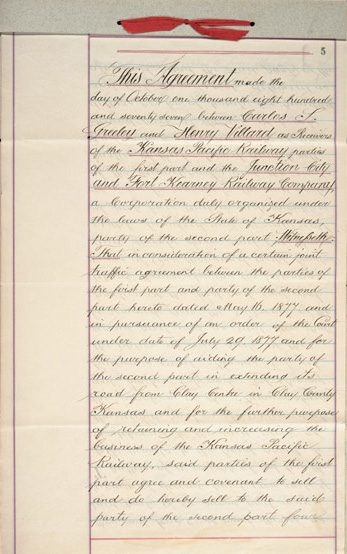 5
This Agreement made the
day of October one thousand eight hundred
and seventy seven between Carlos S.
Greeley and Henry Villard as Receivers
of the Kansas Pacific Railway parties
of the first part and the Junction City
and Fort Kearney Railway Company,
a Corporation duly organized under
the laws of the State of Kansas,
party of the second part Witnesseth:
That in consideration of a certain joint
traffic agreement between the parties of
the first part and party of the second
part hereto dated May 16, 1877 and
in pursuance of an order of the Court
under date of July 29, 1877 and for
the purpose of aiding the party of
the second part in extending its
road from Clay Centre in Clay County
Kansas and for the further purpose
of retaining and increasing the
business of the Kansas Pacific
Railway, said parties of the first
part agree and covenant to sell
and do hereby sell to the said
party of the second part four